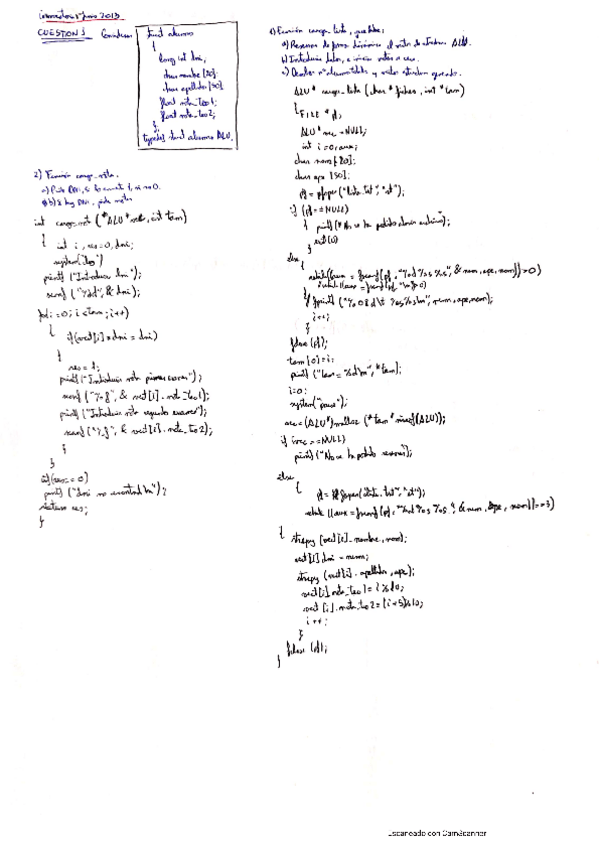 Junio 2013
CUESTION 1
struct alumno
{
long int dni;
char nombre [20];
char apellidos [50];
float nota_teo1;
float nota_teo2;
};
typedef struct alumno ALU;
2) Función carga_nota
a) Pide DNI, si lo encuentra 1, si no 0.
DNI, pide notas
int carga_not (*ALU* vect, int tam)
{ int i, res=0, dni;
system("cls")
printf ("Introduce dni");
scanf ("%d", & dni);
for(i=0; i<tam; i++)
{ if (vect[i].dni = dni)
{
res = 1;
printf ("Introducir nota primer examen");
scanf ("%f", & vect[i].nota_teo1);
printf ("Introducir nota segundo examen");
scanf ("%f", & vect[i].nota_teo2);
}
}
if(res = 0)
printf ("dni no encontrado\n");
return res;
}
1) Función carga_lista, que debe:
a) Reservar de forma dinámica el vector de estructuras ALU.
b) Introducir datos, e iniciar notas a cero.
c) Devolver nº de alumnos y vector
ALU * carga_lista (char * fichero, int * tam)
{ FILE * pf;
ALU * vec = NULL;
int i=0, aux;
char nom[20];
char ape [50];
pf = fopen ("lista.txt", "rt");
if (pf == NULL)
{ printf ("No se ha podido abrir archivo");
exit(0)
}
else
{
while((aux = fscanf(pf, "%d %s %s", & num, ape, nom))>0)
{ printf ("%08d\t %s %s\n", num, ape, nom);
i++;
}
fclose (pf);
tam [0]=i;
printf ("tam = %d\n", *tam);
i=0;
system("pause");
vec = (ALU*)malloc (*tam * sizeof(ALU));
if (vec == NULL)
printf ("No se ha podido reservar");
else
{ pf = fopen("lista.txt", "rt");
while ((aux = fscanf (pf, "%d %s %s", & num, ape, nom))==3)
{ strcpy (vect[i].nombre, nom);
vect[i].dni = num;
strcpy (vect[i].apellidos, ape);
vect[i].nota_teo1 = i%10;
vect [i].nota_teo2 = (i+5)%10;
i++;
}
fclose (pf);
}
Escaneado con CamScanner